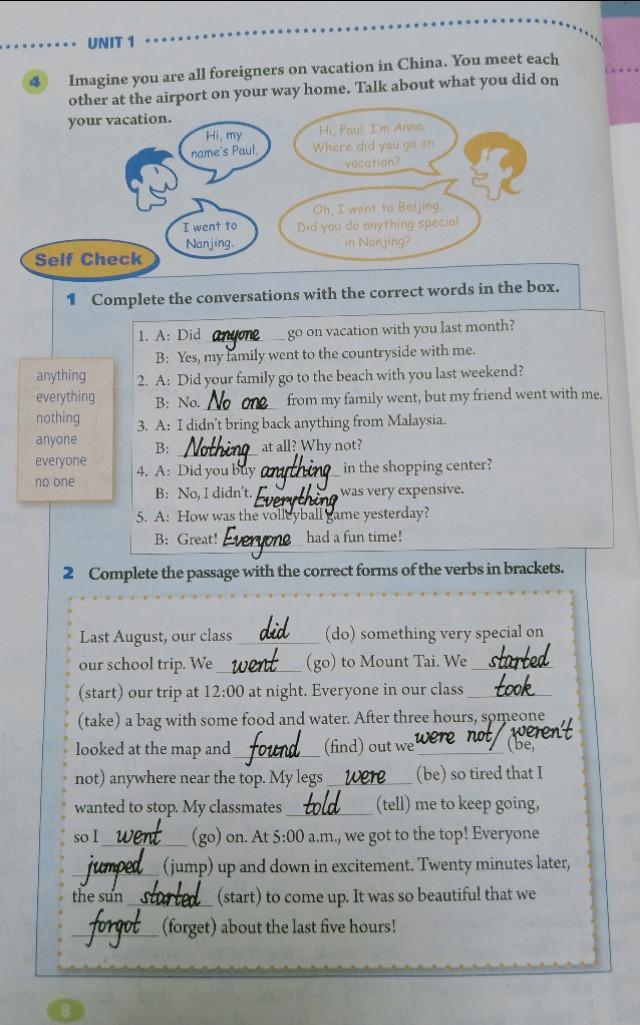 UNIT 1
4 Imagine you are all foreigners on vacation in China. You meet each
other at the airport on your way home. Talk about what you did on
your vacation.
Hi, my
name's Paul.
Hi, Paul. I'm Anna.
Where did you go on
vacation?
I went to
Nanjing.
Oh, I went to Beijing.
Did you do anything special
in Nanjing?
Self Check
1 Complete the conversations with the correct words in the box.
anything
everything
nothing
anyone
everyone
no one
1. A: Did anyone go on vacation with you last month?
B: Yes, my family went to the countryside with me.
2. A: Did your family go to the beach with you last weekend?
B: No. No one from my family went, but my friend went with me.
3. A: I didn't bring back anything from Malaysia.
B: Nothing at all? Why not?
4. A: Did you buy anything in the shopping center?
B: No, I didn't. Everything was very expensive.
5. A: How was the volleyball game yesterday?
B: Great! Everyone had a fun time!
2 Complete the passage with the correct forms of the verbs in brackets.
Last August, our class did (do) something very special on
our school trip. We went (go) to Mount Tai. We started
(start) our trip at 12:00 at night. Everyone in our class took
(take) a bag with some food and water. After three hours, someone
looked at the map and found (find) out we were not/weren't (be,
not) anywhere near the top. My legs were (be) so tired that I
wanted to stop. My classmates told (tell) me to keep going,
so I went (go) on. At 5:00 a.m., we got to the top! Everyone
jumped (jump) up and down in excitement. Twenty minutes later,
the sun started (start) to come up. It was so beautiful that we
forgot (forget) about the last five hours!
8